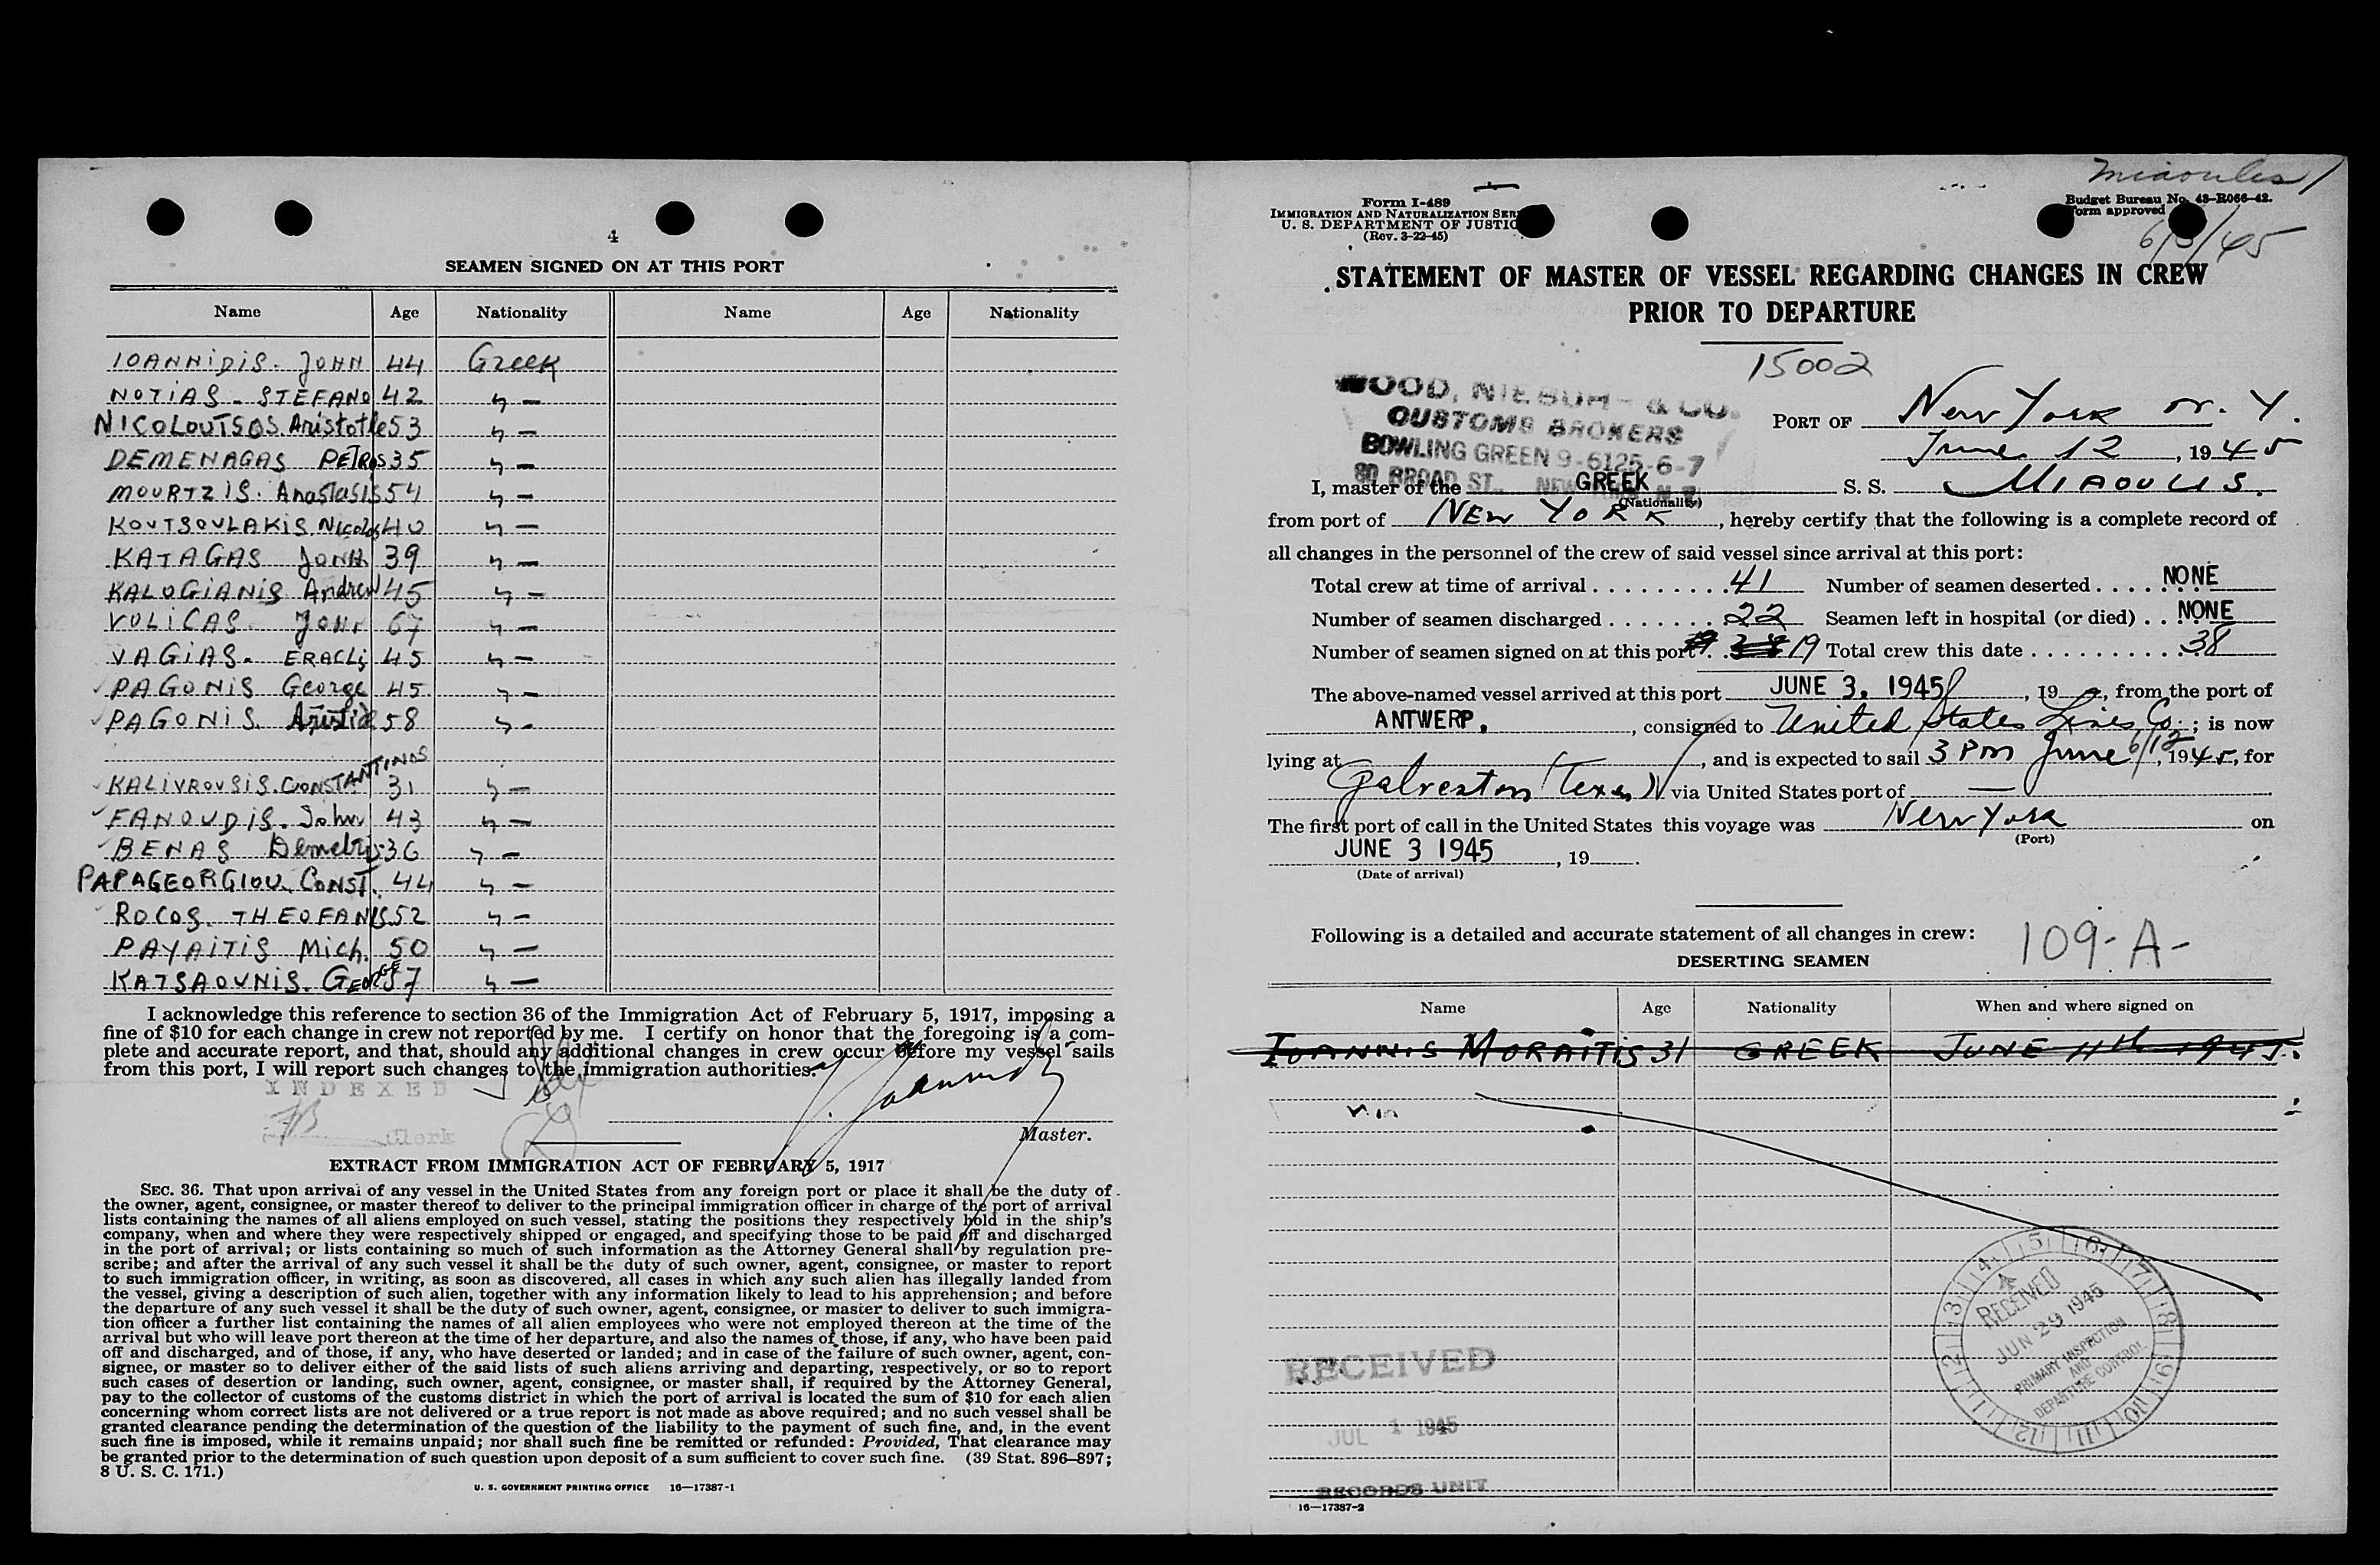 4
SEAMEN SIGNED ON AT THIS PORT
Name Age Nationality Name Age Nationality
IOANNIDIS. JOHN 44 Greek
NOTIAS - STEFANO 42 " -
NICOLOUTSOS. Aristotle 53 " -
DEMENAGAS PETROS 35 " -
MOURTZIS. Anastasis 54 " -
KOUTSOULAKIS. Nicolas 40 " -
KATAGAS JOHN 39 " -
KALOGIANIS Andrew 45 " -
VOLICAS. JOHN 67 " -
VAGIAS. ERACLIS 45 " -
PAGONIS George 45 " -
PAGONIS. Aristid 58 " -
KALIVROUSIS. CONSTANTINOS 31 " -
FANOUDIS. John 43 " -
BENAS Demetris 36 " -
PAPAGEORGIOU. CONST. 44 " -
ROCOS. THEOFANIS 52 " -
PAYAITIS Mich. 50 " -
KATSAOUNIS. GEORGE 57 " -
I acknowledge this reference to section 36 of the Immigration Act of February 5, 1917, imposing a
fine of $10 for each change in crew not reported by me. I certify on honor that the foregoing is a com-
plete and accurate report, and that, should any additional changes in crew occur before my vessel sails
from this port, I will report such changes to the immigration authorities.
INDEXED
Clerk
Master.
EXTRACT FROM IMMIGRATION ACT OF FEBRUARY 5, 1917
SEC. 36. That upon arrival of any vessel in the United States from any foreign port or place it shall be the duty of
the owner, agent, consignee, or master thereof to deliver to the principal immigration officer in charge of the port of arrival
lists containing the names of all aliens employed on such vessel, stating the positions they respectively hold in the ship's
company, when and where they were respectively shipped or engaged, and specifying those to be paid off and discharged
in the port of arrival; or lists containing so much of such information as the Attorney General shall by regulation pre-
scribe; and after the arrival of any such vessel it shall be the duty of such owner, agent, consignee, or master to report
to such immigration officer, in writing, as soon as discovered, all cases in which any such alien has illegally landed from
the vessel, giving a description of such alien, together with any information likely to lead to his apprehension; and before
the departure of any such vessel it shall be the duty of such owner, agent, consignee, or master to deliver to such immigra-
tion officer a further list containing the names of all alien employees who were not employed thereon at the time of the
arrival but who will leave port thereon at the time of her departure, and also the names of those, if any, who have been paid
off and discharged, and of those, if any, who have deserted or landed; and in case of the failure of such owner, agent, con-
signee, or master so to deliver either of the said lists of such aliens arriving and departing, respectively, or so to report
such cases of desertion or landing, such owner, agent, consignee, or master shall, if required by the Attorney General,
pay to the collector of customs of the customs district in which the port of arrival is located the sum of $10 for each alien
concerning whom correct lists are not delivered or a true report is not made as above required; and no such vessel shall be
granted clearance pending the determination of the question of the liability to the payment of such fine, and, in the event
such fine is imposed, while it remains unpaid; nor shall such fine be remitted or refunded: Provided, That clearance may
be granted prior to the determination of such question upon deposit of a sum sufficient to cover such fine. (39 Stat. 896–897;
8 U. S. C. 171.)
U. S. GOVERNMENT PRINTING OFFICE 16—17387-1
Miaoules
Form I-489
IMMIGRATION AND NATURALIZATION SER
U. S. DEPARTMENT OF JUSTIC
(Rev. 3-22-45)
Budget Bureau No. 43-R066-42.
Form approved
6/3/45
STATEMENT OF MASTER OF VESSEL REGARDING CHANGES IN CREW
PRIOR TO DEPARTURE
15002
WOOD, NIEBUHR & CO.
CUSTOMS BROKERS
BOWLING GREEN 9-6125-6-7
80 BROAD ST., NEW YORK, N. Y.
PORT OF New York N. Y.
June 12, 1945
I, master of the GREEK S. S. MIAOULIS.
(Nationality)
from port of NEW YORK, hereby certify that the following is a complete record of
all changes in the personnel of the crew of said vessel since arrival at this port:
Total crew at time of arrival . . . . . . . . . 41 Number of seamen deserted . . . . . . . NONE
Number of seamen discharged . . . . . . . 22 Seamen left in hospital (or died) . . . . NONE
Number of seamen signed on at this port . . 19 Total crew this date . . . . . . . . . . 38
The above-named vessel arrived at this port JUNE 3. 1945, 19, from the port of
ANTWERP., consigned to United States Lines Co.; is now
lying at , and is expected to sail 3 PM June 6/12, 1945, for
Galveston (Texas) via United States port of —
The first port of call in the United States this voyage was New York on
(Port)
JUNE 3 1945, 19 .
(Date of arrival)
Following is a detailed and accurate statement of all changes in crew:
109-A-
DESERTING SEAMEN
Name Age Nationality When and where signed on
IOANNIS MORAITIS 31 GREEK JUNE 11th 1945.
RECEIVED
JUN 29 1945
PRIMARY INSPECTION
AND
DEPARTURE CONTROL
1 2 3 4 5 6 7 8 9 10 11 12
RECEIVED
JUL 1 1945
RECORDS UNIT
16—17387-2